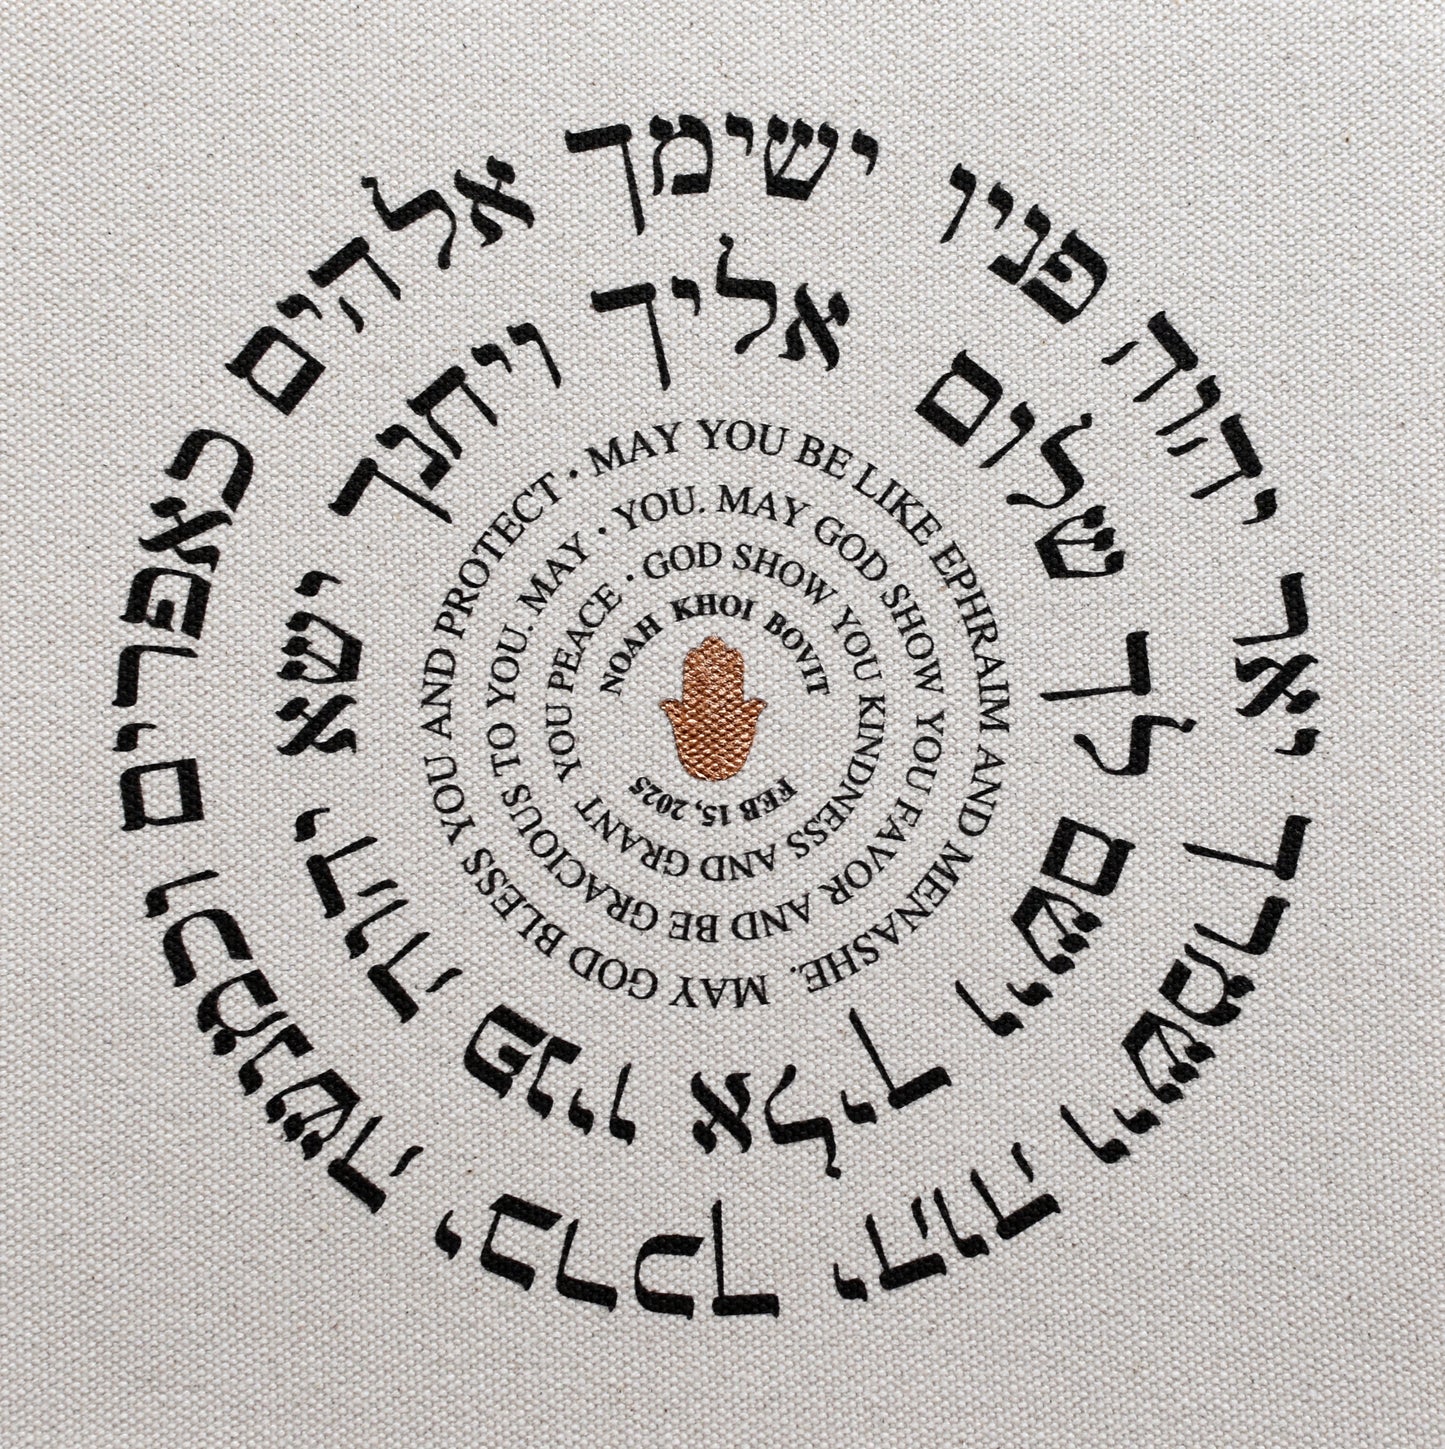 ישימך אלהים כאפרים וכמנשה יברכך יהוה וישמרך יאר יהוה פניו
אליך ויחנך ישא יהוה פניו אליך וישם לך שלום
· MAY YOU BE LIKE EPHRAIM AND MENASHE. MAY GOD BLESS YOU AND PROTECT
· YOU. MAY GOD SHOW YOU FAVOR AND BE GRACIOUS TO YOU. MAY
· GOD SHOW YOU KINDNESS AND GRANT YOU PEACE
NOAH KHOI BOVIT
FEB 15, 2025